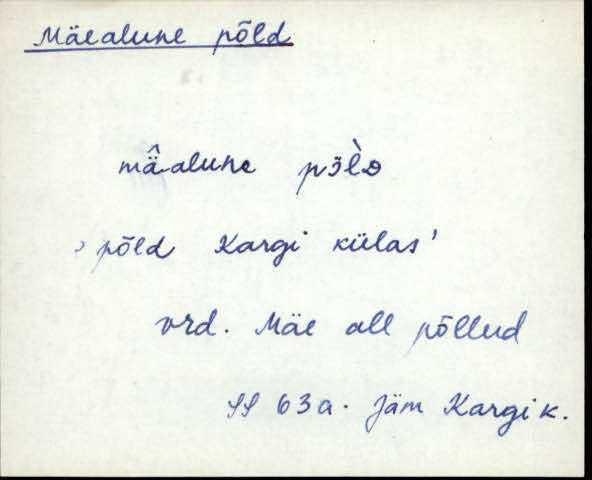 Mäealune põld
mä̂alune pɜ̄l̀ᴅ
’põld Kargi külas’
vrd. Mäe all põllud
SS 63a. Jäm Kargi k.